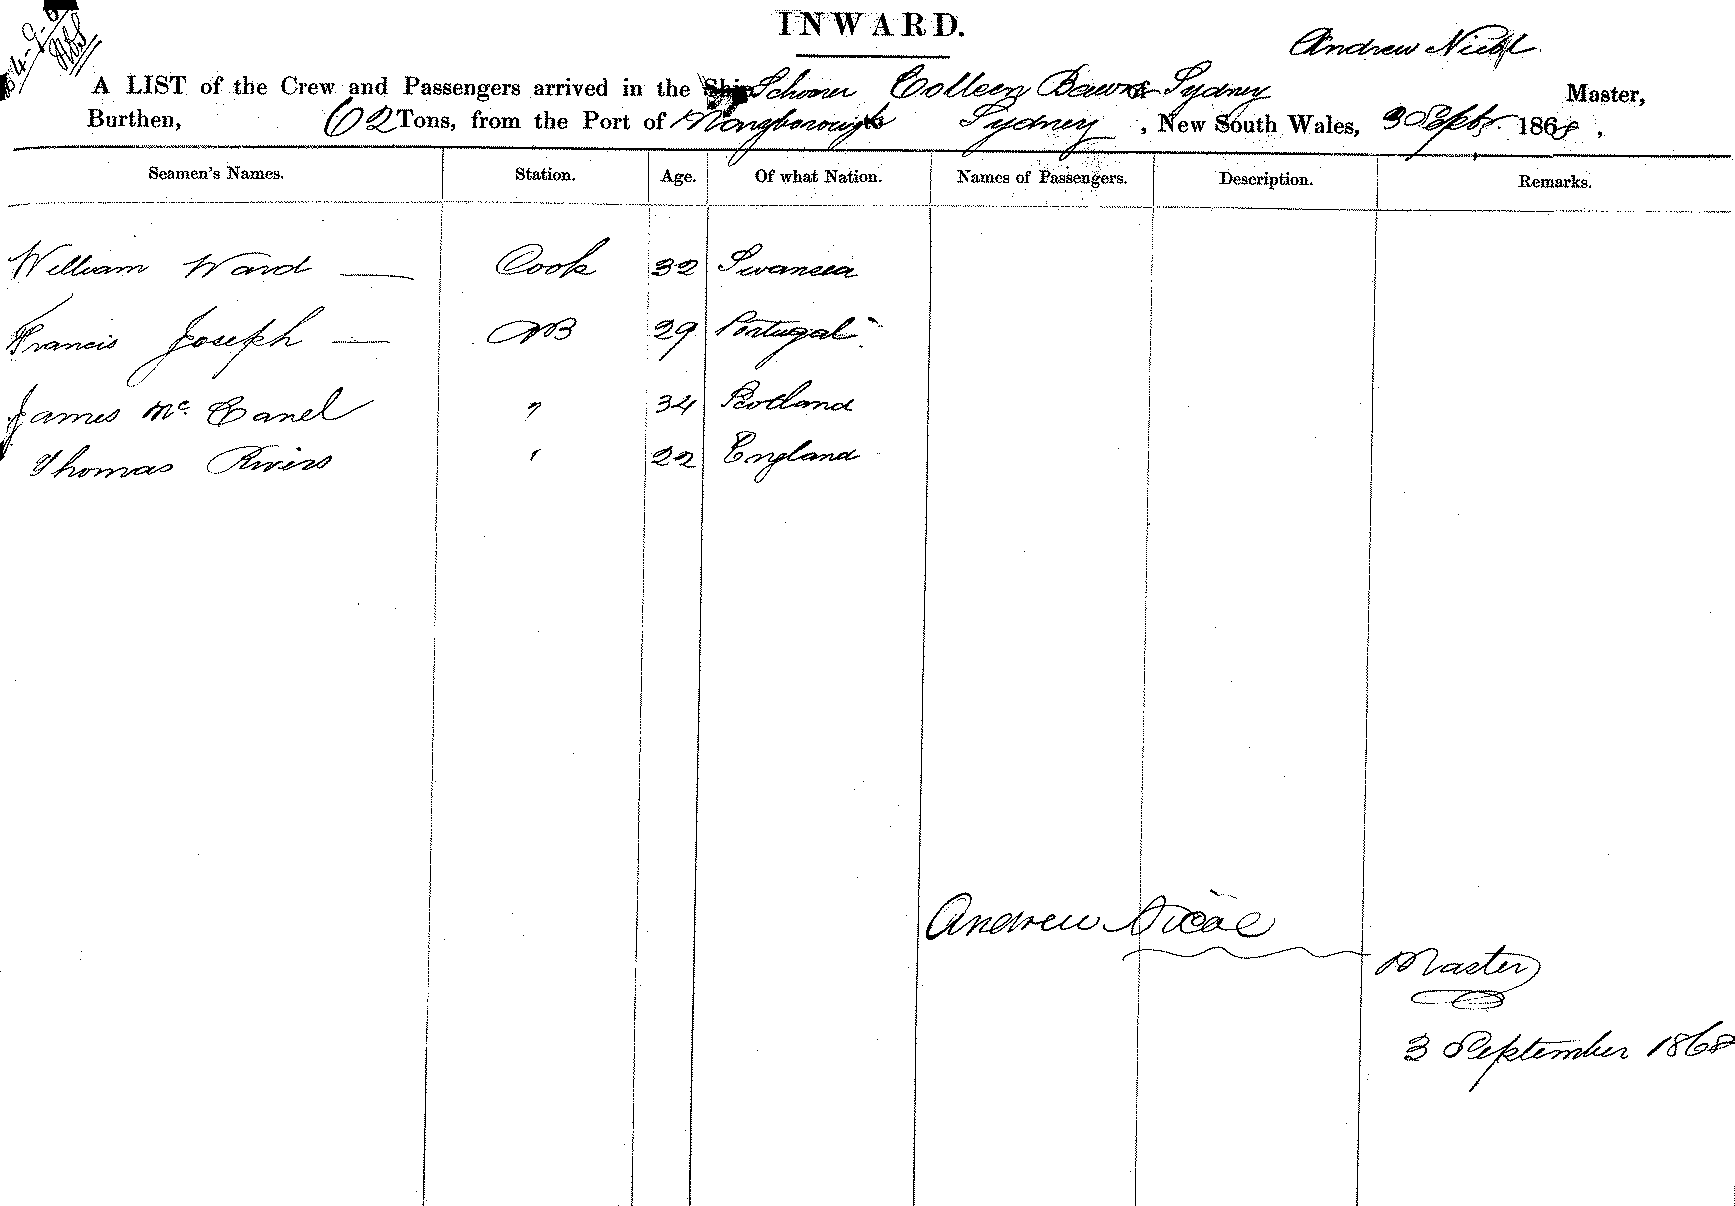 INWARD.
Andrew Nicol
A LIST of the Crew and Passengers arrived in the Ship Schooner Colleen Bawn of Sydney Master,
Burthen, 62 Tons, from the Port of Maryborough to Sydney, New South Wales, 3 Septr. 1868,
Seamen's Names. Station. Age. Of what Nation. Names of Passengers. Description. Remarks.
William Ward — Cook 32 Swansea
Francis Joseph — AB 29 Portugal
James Mc. Canel " 34 Scotland
Thomas Rivers " 22 England
Andrew Nicol
Master
3 September 1868